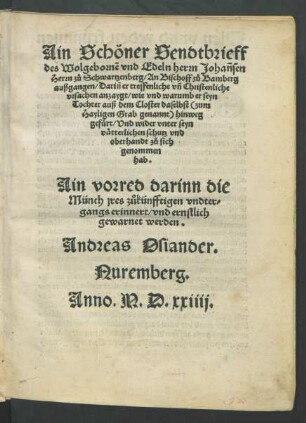 Ain Schöner Sendtbrieff
des Wolgeborne͂ vnd Edeln herrn Johan͂sen
Herrn zů Schwartzenberg/ An Bischoff zů Bamberg
außgangen/ Darin͂ er treffenliche vn͂ Christenliche
vrsachen anzaygt/ wie vnd warumb er seyn
Tochter auß dem Closter daselbst (zum
Hayligen Grab genannt) hinweg
gefürt/ Vnd wider vnter seyn
våtterlichen schutz vnd
oberhandt zů sich
genommen
hab.
Ain vorred darinn die
Münch jres zůkünfftigen vndter-
gangs erinnert/ vnd ernstlich
gewarnet werden.
Andreas Osiander.
Nuremberg.
Anno. M. D. xxiiij.